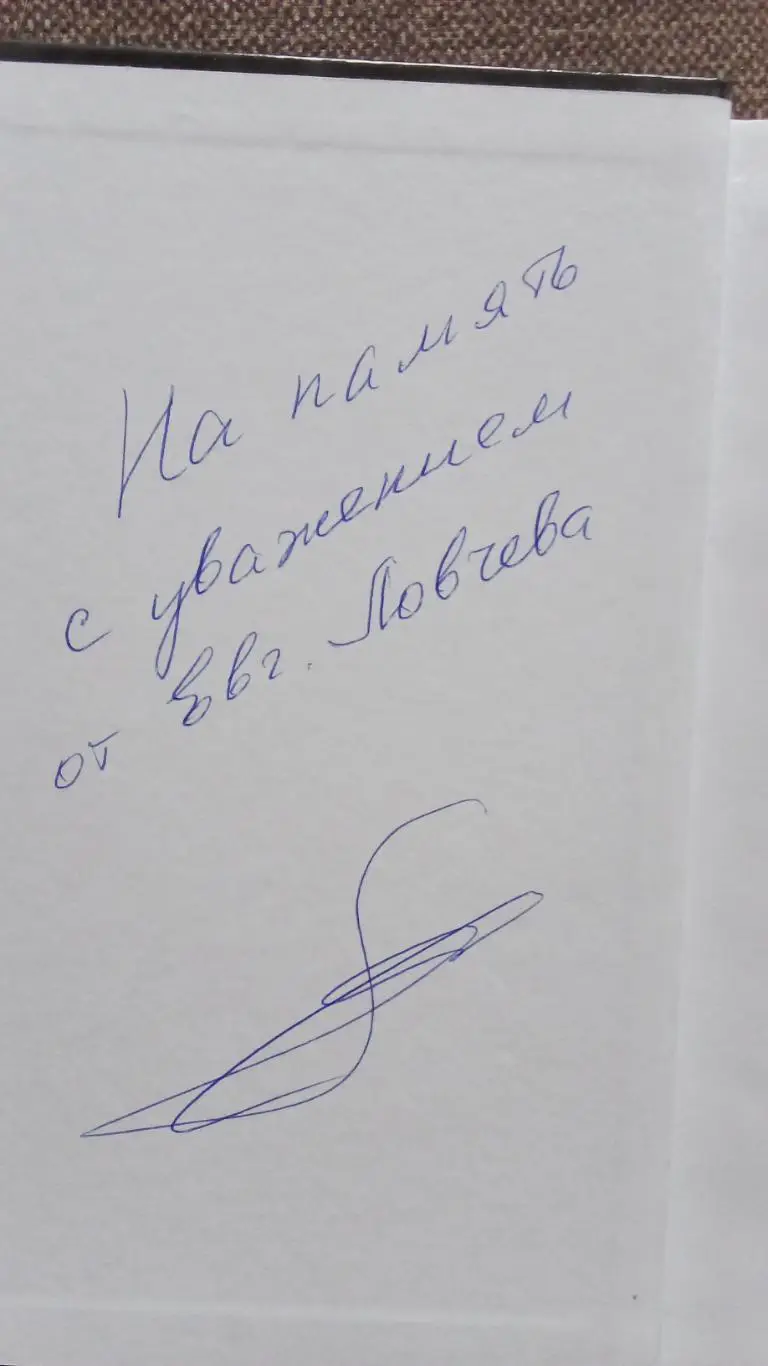 На память
с уважением
от Евг. Ловчева